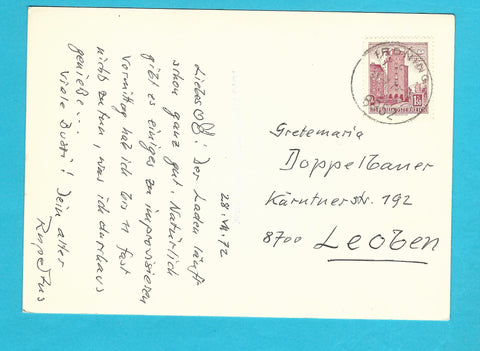 28.VII.72
Liebes! Der Laden läuft
schon ganz gut. Natürlich
gibt es einiges zu improvisieren
Vormittag hab ich bis 11 fast
nichts zu tun, was ich durchaus
genieße...
Viele Bussi! Dein alter
Rupertus
IRDNING
REPUBLIK ÖSTERREICH
Gretemaria
Doppelbauer
Kärntnerstr. 192
8700 Leoben